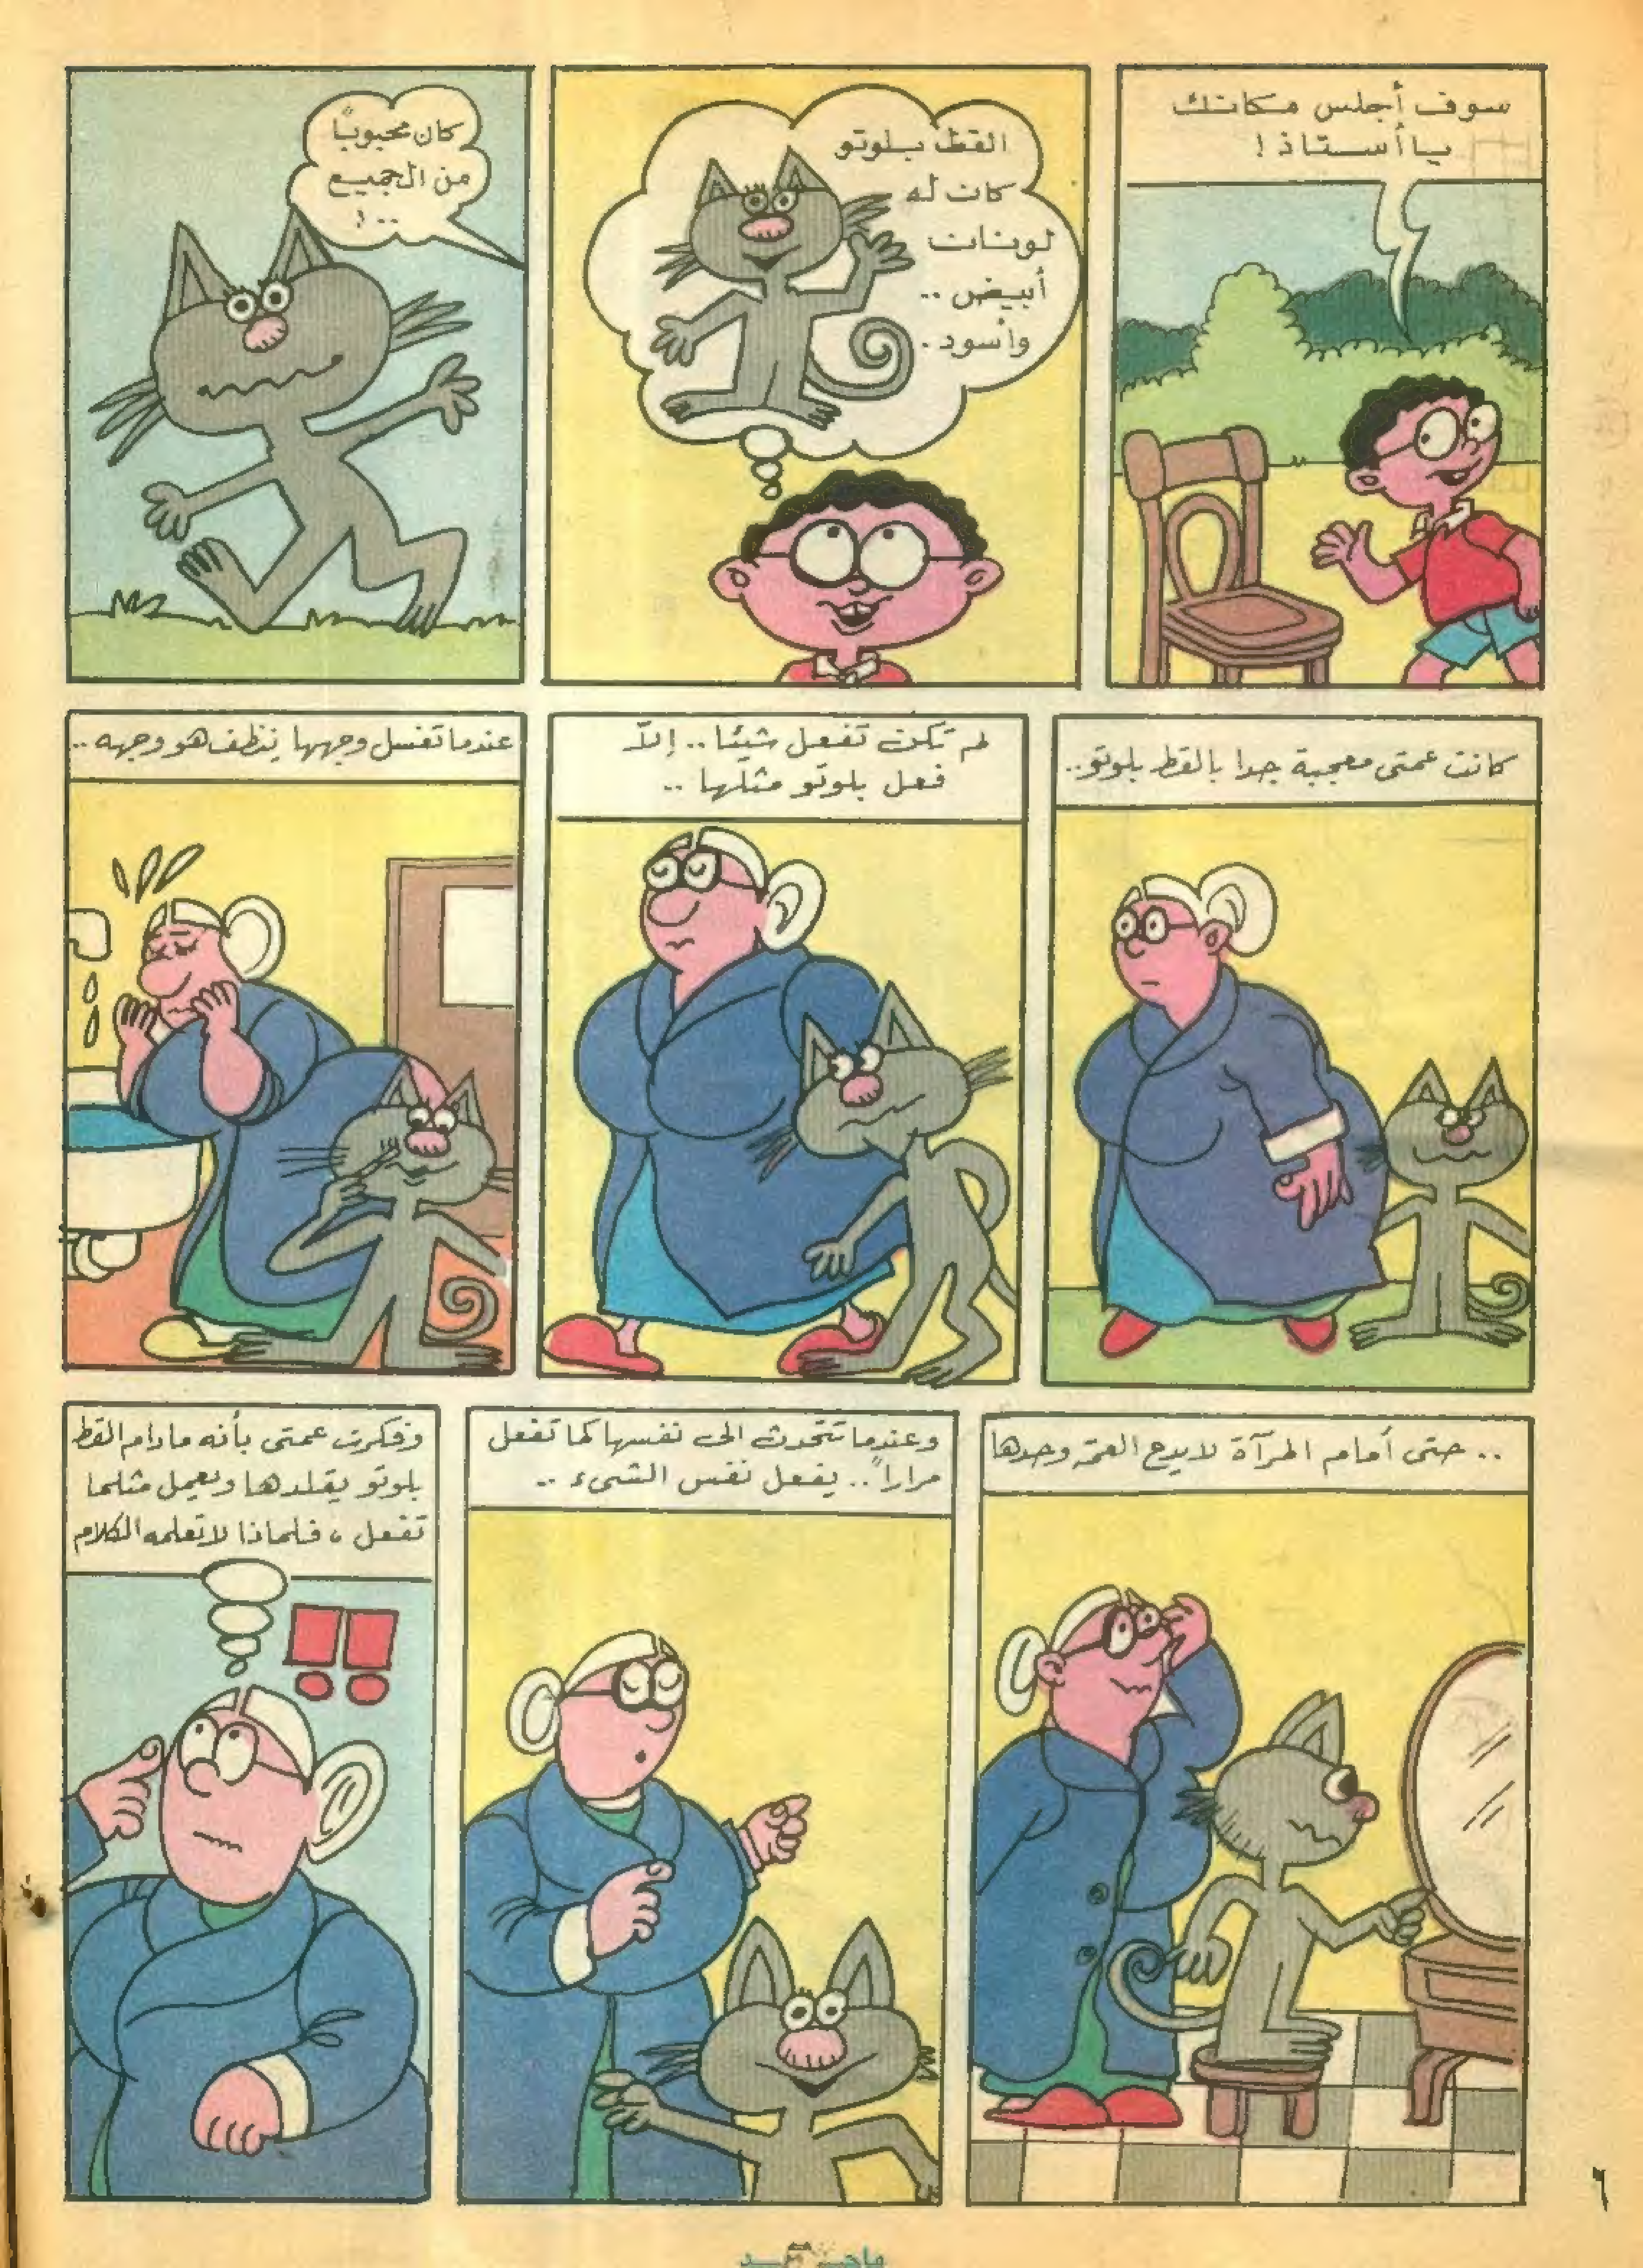 سوف أجلس مكانك
يا أستاذ !
القط بلوتو
كان له
لونان
أبيض ..
وأسود .
كان محبوباً
من الجميع
.. !
كانت عمتى معجبة جدا بالقط بلوتو ..
لم تكن تفعل شيئا .. إلاّ
فعل بلوتو مثلها ..
عندما تغسل وجهها ينظف هو وجهه ..
.. حتى أمام المرآة لا يدع العمة وحدها
وعندما تتحدث الى نفسها كما تفعل
مراراً .. يفعل نفس الشىء ..
وفكرت عمتى بأنه مادام القط
بلوتو يقلدها ويعمل مثلما
تفعل ، فلماذا لا تعلمه الكلام
!!
٦
ماجد